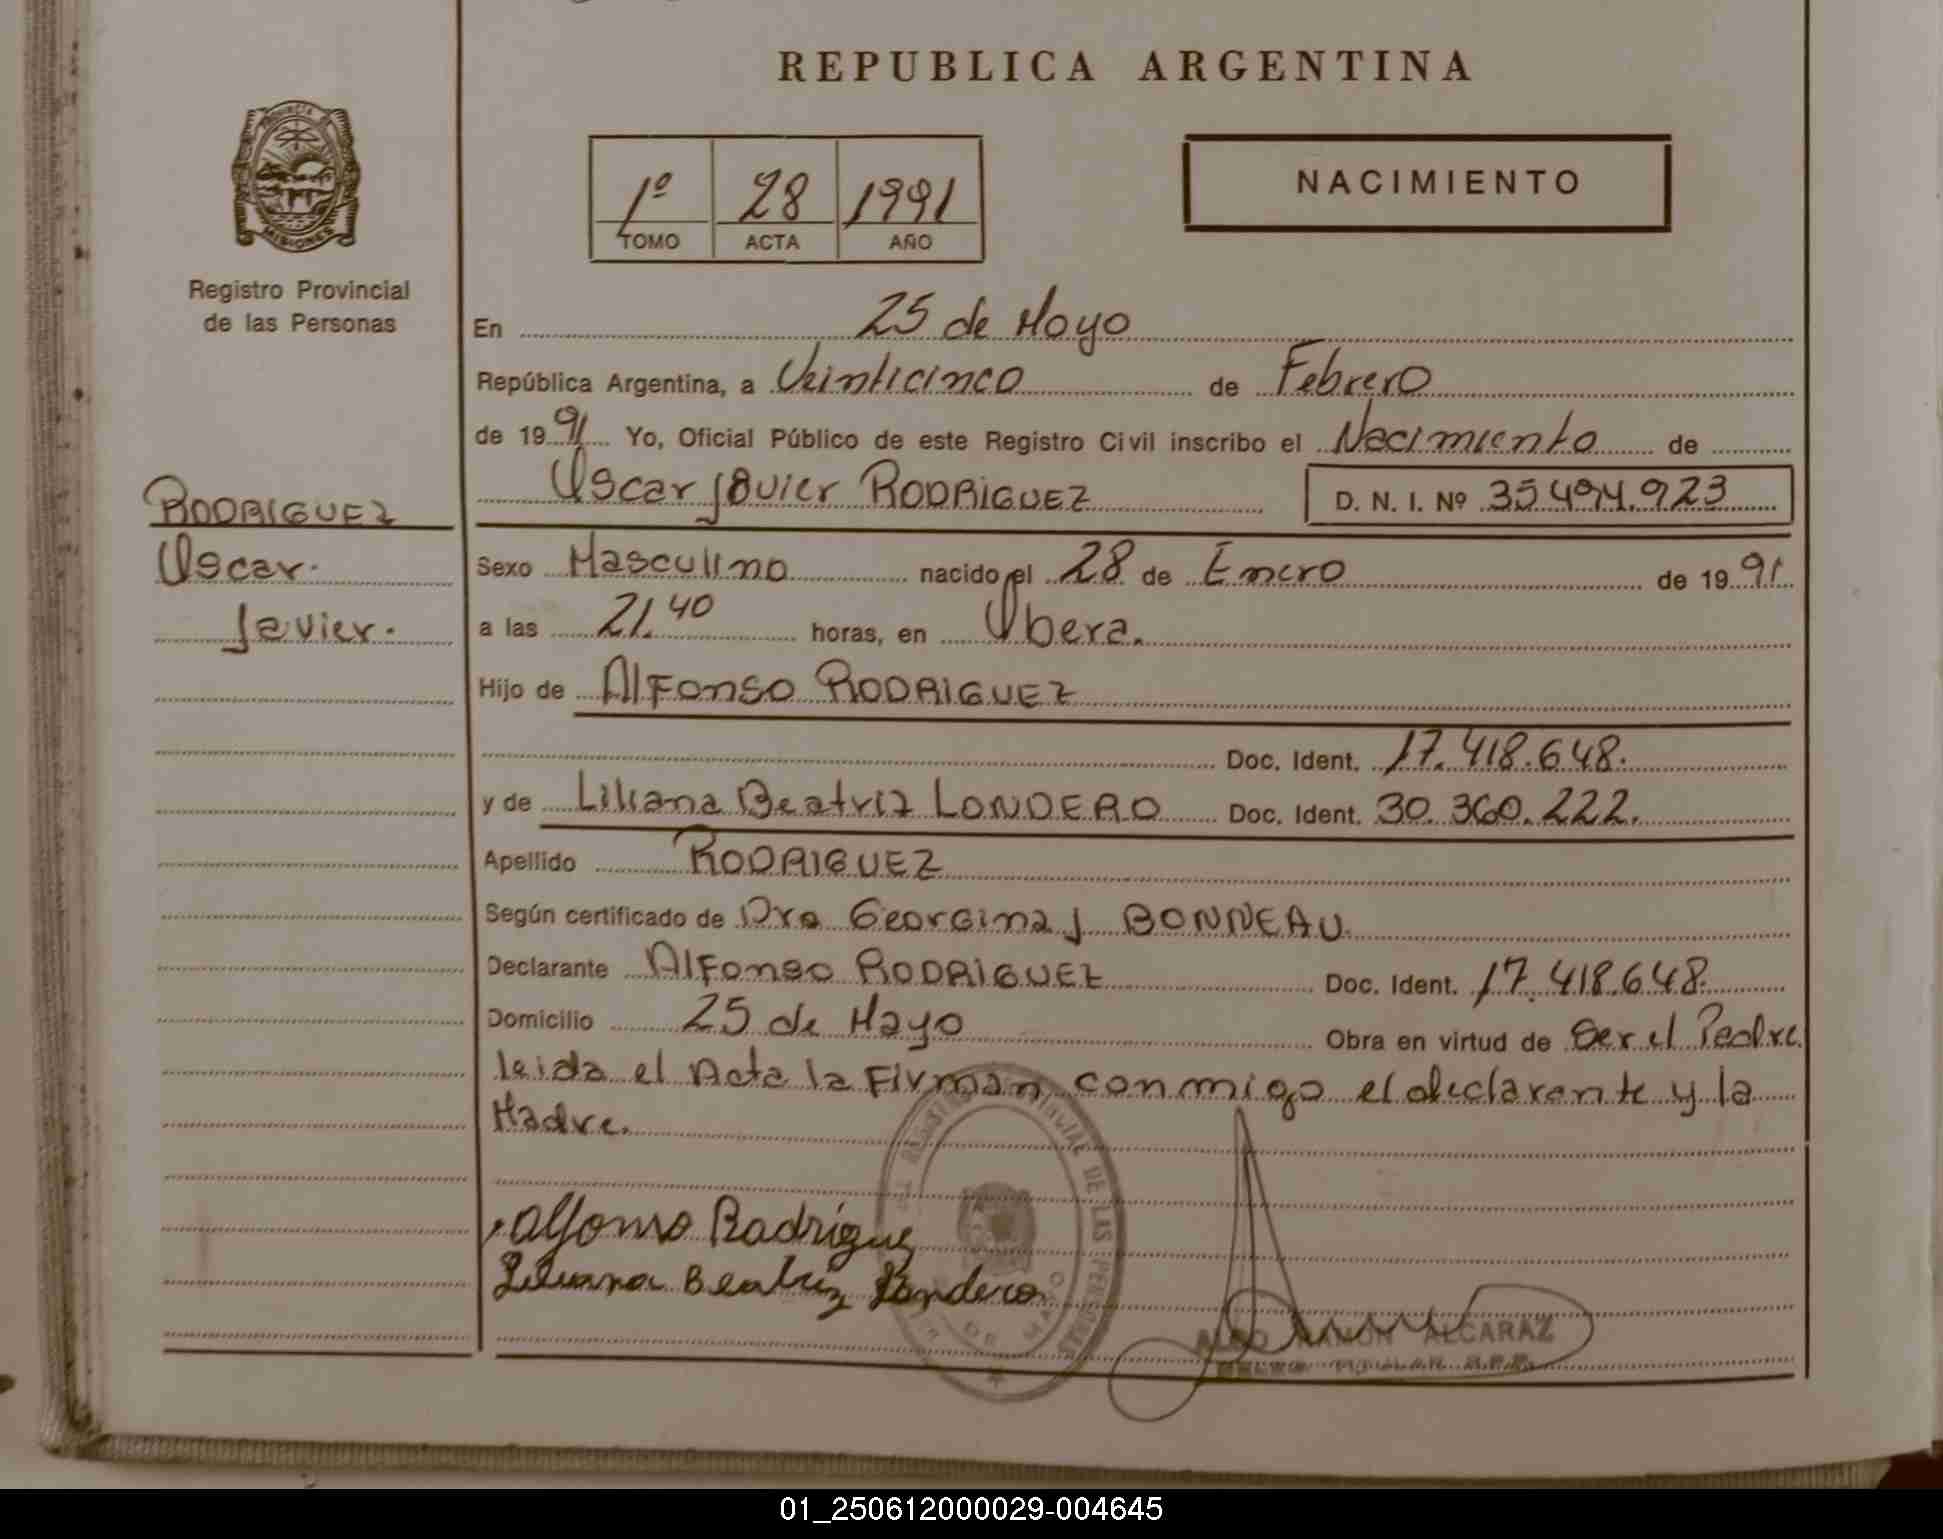 REPUBLICA ARGENTINA
PROVINCIA
MISIONES
Registro Provincial
de las Personas
1º 28 1991
TOMO ACTA AÑO
NACIMIENTO
En 25 de Mayo
República Argentina, a Veinticinco de Febrero
de 1991 Yo, Oficial Público de este Registro Civil inscribo el Nacimiento de
Oscar Javier RODRIGUEZ D. N. I. Nº 35494.923
RODRIGUEZ
Oscar.
Javier.
Sexo Masculino nacido el 28 de Enero de 1991
a las 21.40 horas, en Obera.
Hijo de Alfonso RODRIGUEZ
Doc. Ident. 17.418.648.
y de Liliana Beatriz LONDERO Doc. Ident. 30.360.222.
Apellido RODRIGUEZ
Según certificado de Dra Georgina J BONNEAU.
Declarante Alfonso RODRIGUEZ Doc. Ident. 17.418.648.
Domicilio 25 de Mayo Obra en virtud de Ser el Padre
leida el Acta la Firman conmigo el declarante y la
Madre.
Alfonso Rodriguez
Liliana Beatriz Londero
DE LAS PERSONAS
DE MAYO
RAMON ALCARAZ
01_250612000029-004645